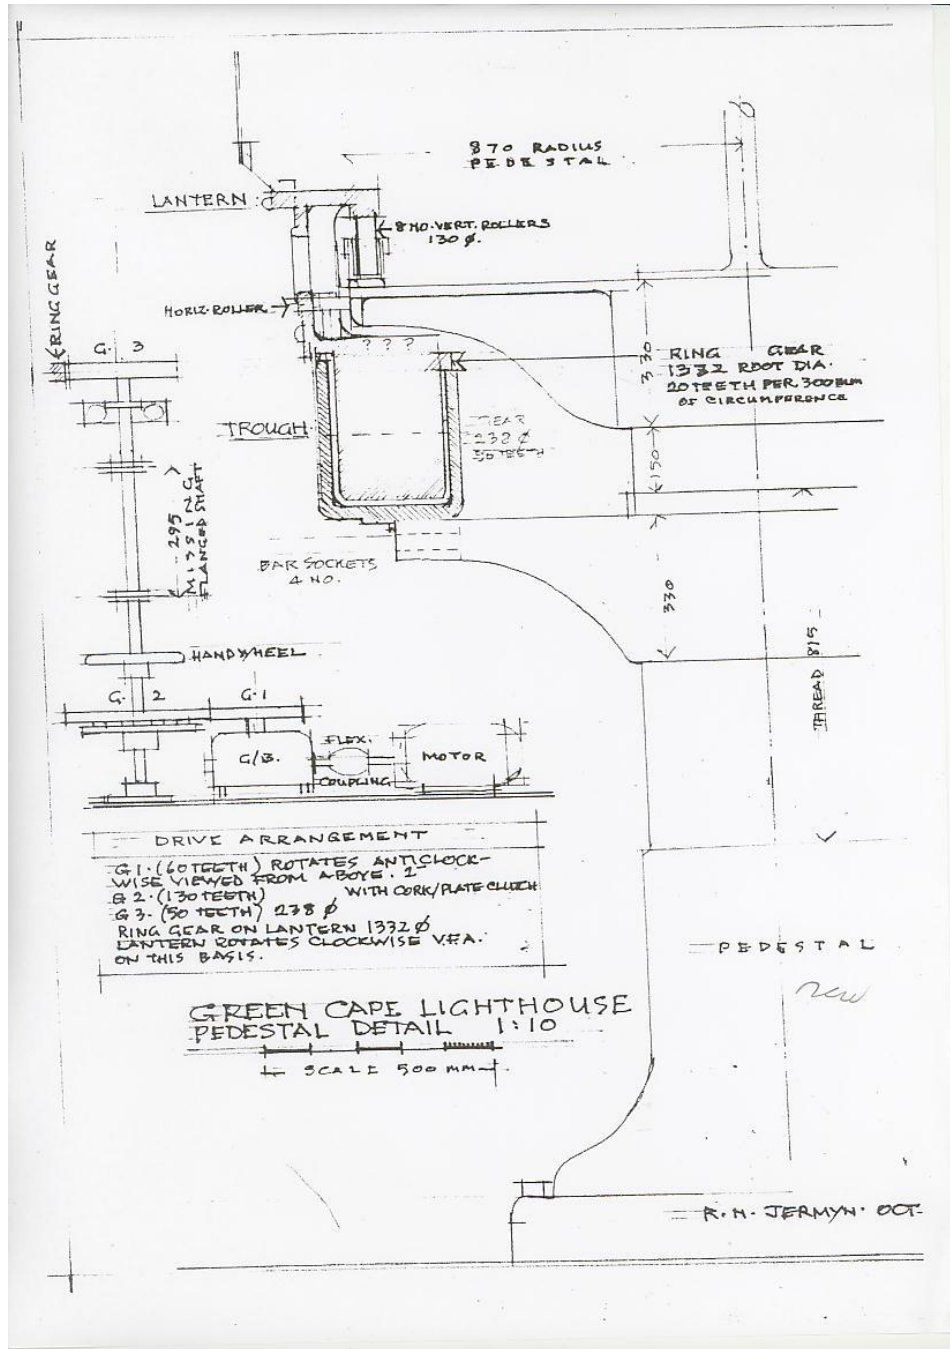 870 RADIUS
PEDESTAL
LANTERN
8 NO. VERT. ROLLERS
130 Ø.
RING GEAR
HORIZ. ROLLER
G. 3
? ? ?
330
RING GEAR
1332 ROOT DIA.
20 TEETH PER 300 MM
OF CIRCUMFERENCE
TROUGH
GEAR
238 Ø
50 TEETH
150
295
MISSING
FLANGED SHAFT
BAR SOCKETS
4 NO.
330
THREAD 815
HANDWHEEL
G. 2
G. 1
G/B.
FLEX.
COUPLING
MOTOR
DRIVE ARRANGEMENT
G 1. (60 TEETH) ROTATES ANTICLOCK-
WISE VIEWED FROM ABOVE.
G 2. (130 TEETH) WITH CORK/PLATE CLUTCH
G 3. (50 TEETH) 238 Ø
RING GEAR ON LANTERN 1332 Ø
LANTERN ROTATES CLOCKWISE V.F.A.
ON THIS BASIS.
PEDESTAL
new
GREEN CAPE LIGHTHOUSE
PEDESTAL DETAIL 1:10
SCALE 500 MM
R. H. JERMYN. OCT.